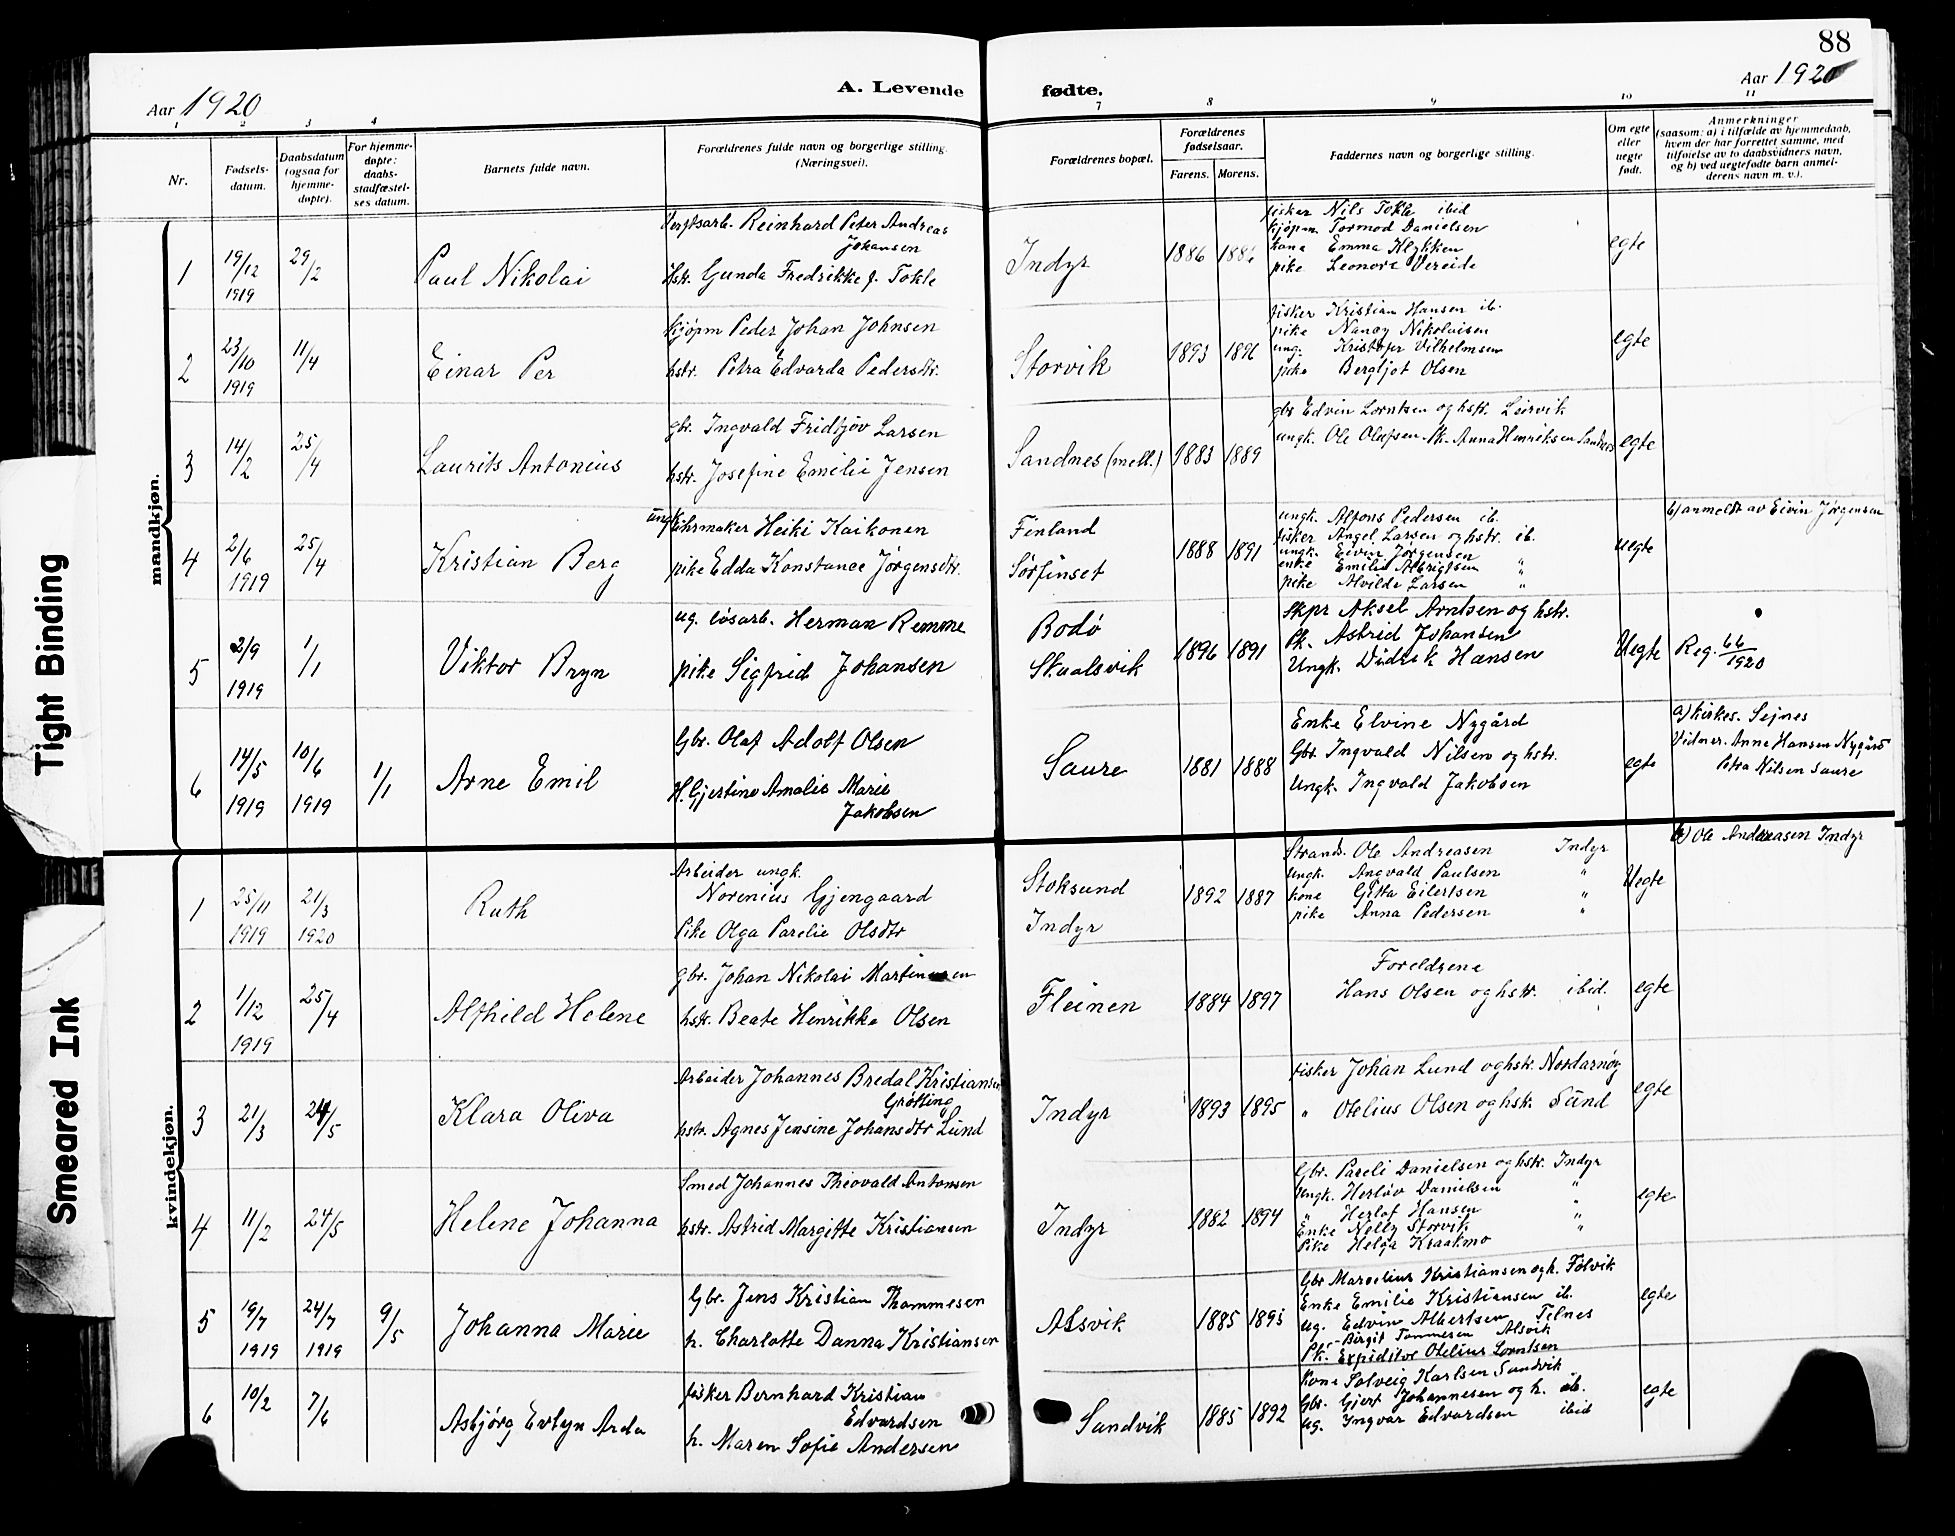 88
Aar 1920
A. Levende
fødte.
Aar 1920
1 2 3 4
7 8 9 10 11
Nr.
Fødsels-
datum.
Daabsdatum
(ogsaa for
hjemme-
døpte).
For hjemme-
døpte:
daabs-
stadfæstel-
ses datum.
Barnets fulde navn.
Forældrenes fulde navn og borgerlige stilling.
(Næringsvei).
Forældrenes bopæl.
Forældrenes
fødselsaar.
Farens. Morens.
Faddernes navn og borgerlige stilling.
Om egte
eller
uegte
født.
Anmerkninger
(saasom: a) i tilfælde av hjemmedaab,
hvem der har forrettet samme, med
tilføielse av to daabsvidners navn,
og b) ved uegtefødte barn anmel-
derens navn m. v.).
mandkjøn.
1
19/12
1919
29/2
Paul Nikolai
Reinhard Peter Andreas
Johansen
Hstr. Gunda Fredrikke f. Tokle
Indyr
1886
fisker Nils Tokle ibid
kjøpm Tormod Danielsen
kone Emma Klykken
pike Leonore Vereide
egte
2
23/10
1919
11/4
Einar Per
kjøpm Peder Johan Johnsen
hstr. Petra Edvarda Pedersdtr.
Storvik
1893 1896
fisker Kristian Hansen ib.
pike Nancy Nikolaisen
ung. Kristofer Vilhelmsen
pike Bergljot Olsen
egte
3
14/2
25/4
Laurits Antonius
gbr. Ingvald Fridtjov Larsen
hstr. Josefine Emilie Jensen
Sandnes (mell.)
1883 1889
gbr Edvin Lorntsen og hstr. Leirvik
ungk. Ole Olufsen Pk. Anna Henriksen Sandnes
egte
4
2/6
1919
25/4
Kristian Berg
ungk. uhrmaker Heiki Kaikonen
pike Edda Konstance Jørgensdtr.
Finland
Sørfinset
1888 1891
ungk. Alfons Pedersen ib.
fisker Angel Larsen og hstr. ib.
ungk. Eivin Jørgensen
enke Emilie Albrigtsen "
pike Alvilde Larsen "
uegte
b) anmeldt av Eivin Jørgensen
5
2/9
1919
1/1
Viktor Bryn
ug. løsarb. Herman Remme
pike Sigfrid Johansen
Bodø
Skaalsvik
1896 1891
Skpr Aksel Arntsen og hstr.
Pk. Astrid Johansen
Ungk. Didrik Hansen
Uegte
Reg. 66/1920
6
14/5
1919
10/6
1919
1/1
Arne Emil
Gbr. Olaf Adolf Olsen
H. Gjertine Amalie Marie
Jakobsen
Saure
1881 1888
Enke Elvine Nygård
Gbr. Ingvald Nilsen og hstr.
Ungk. Ingvald Jakobsen
egte
a) kirkes. Sejnes
Vidner. Anne Hansen Nygård
Petra Nilsen Saure
kvindekjøn.
1
25/11
1919
21/3
1920
Ruth
Arbeider ungk.
Norenius Gjengaard
Pike Olga Parelie Olsdtr
Stoksund
Indyr
1892 1887
Strands. Ole Andreasen Indyr
Ungk. Angvald Paulsen "
kone Gitta Eilertsen "
pike Anna Pedersen "
Uegte
b) Ole Andreasen Indyr
2
1/12
1919
25/4
Alfhild Helene
gbr. Johan Nikolai Martinussen
hstr. Beate Henrikke Olsen
Fleinen
1884 1897
Foreldrene
Hans Olsen og hstr. ibid.
egte
3
21/3
24/5
Klara Oliva
Arbeider Johannes Bredal Kristiansen
Grøtting
hstr. Agnes Jensine Johansdtr Lund
Indyr
1893 1895
fisker Johan Lund og hstr. Nordarnøy
" Otelius Olsen og hsk. Sund
egte
4
11/2
24/5
Helene Johanna
Smed Johannes Theovald Antonsen
hstr. Astrid Margitte Kristiansen
Indyr
1882 1894
Gbr. Pareli Danielsen og hstr. Indyr
Ungk. Herløv Danielsen "
" Herlof Hansen "
Enke Nelly Storvik "
Pike Helga Kraakmo
egte
5
19/7
1919
24/7
1919
9/5
Johanna Marie
Gbr. Jens Kristian Thommesen
h. Charlotte Danna Kristiansen
Alsvik
1885 1895
Gbr Marcelius Kristiansen og h. Følvik
Enke Emilie Kristiansen ib.
ug. Edvin Albertsen Telnes
Pk. Birgit Tommesen Alsvik
Expeditør Otelius Lorntsen
egte
6
10/2
7/6
Asbjørg Evlyn Arda
fisker Bernhard Kristian
Edvardsen
h. Maren Sofie Andersen
Sandvik
1885 1892
Kone Solveig Karlsen Sandvik
Gbr. Gjert Johannesen og h. ib.
ug. Ingvar Edvardsen ibid
egte
Tight Binding
Smeared Ink